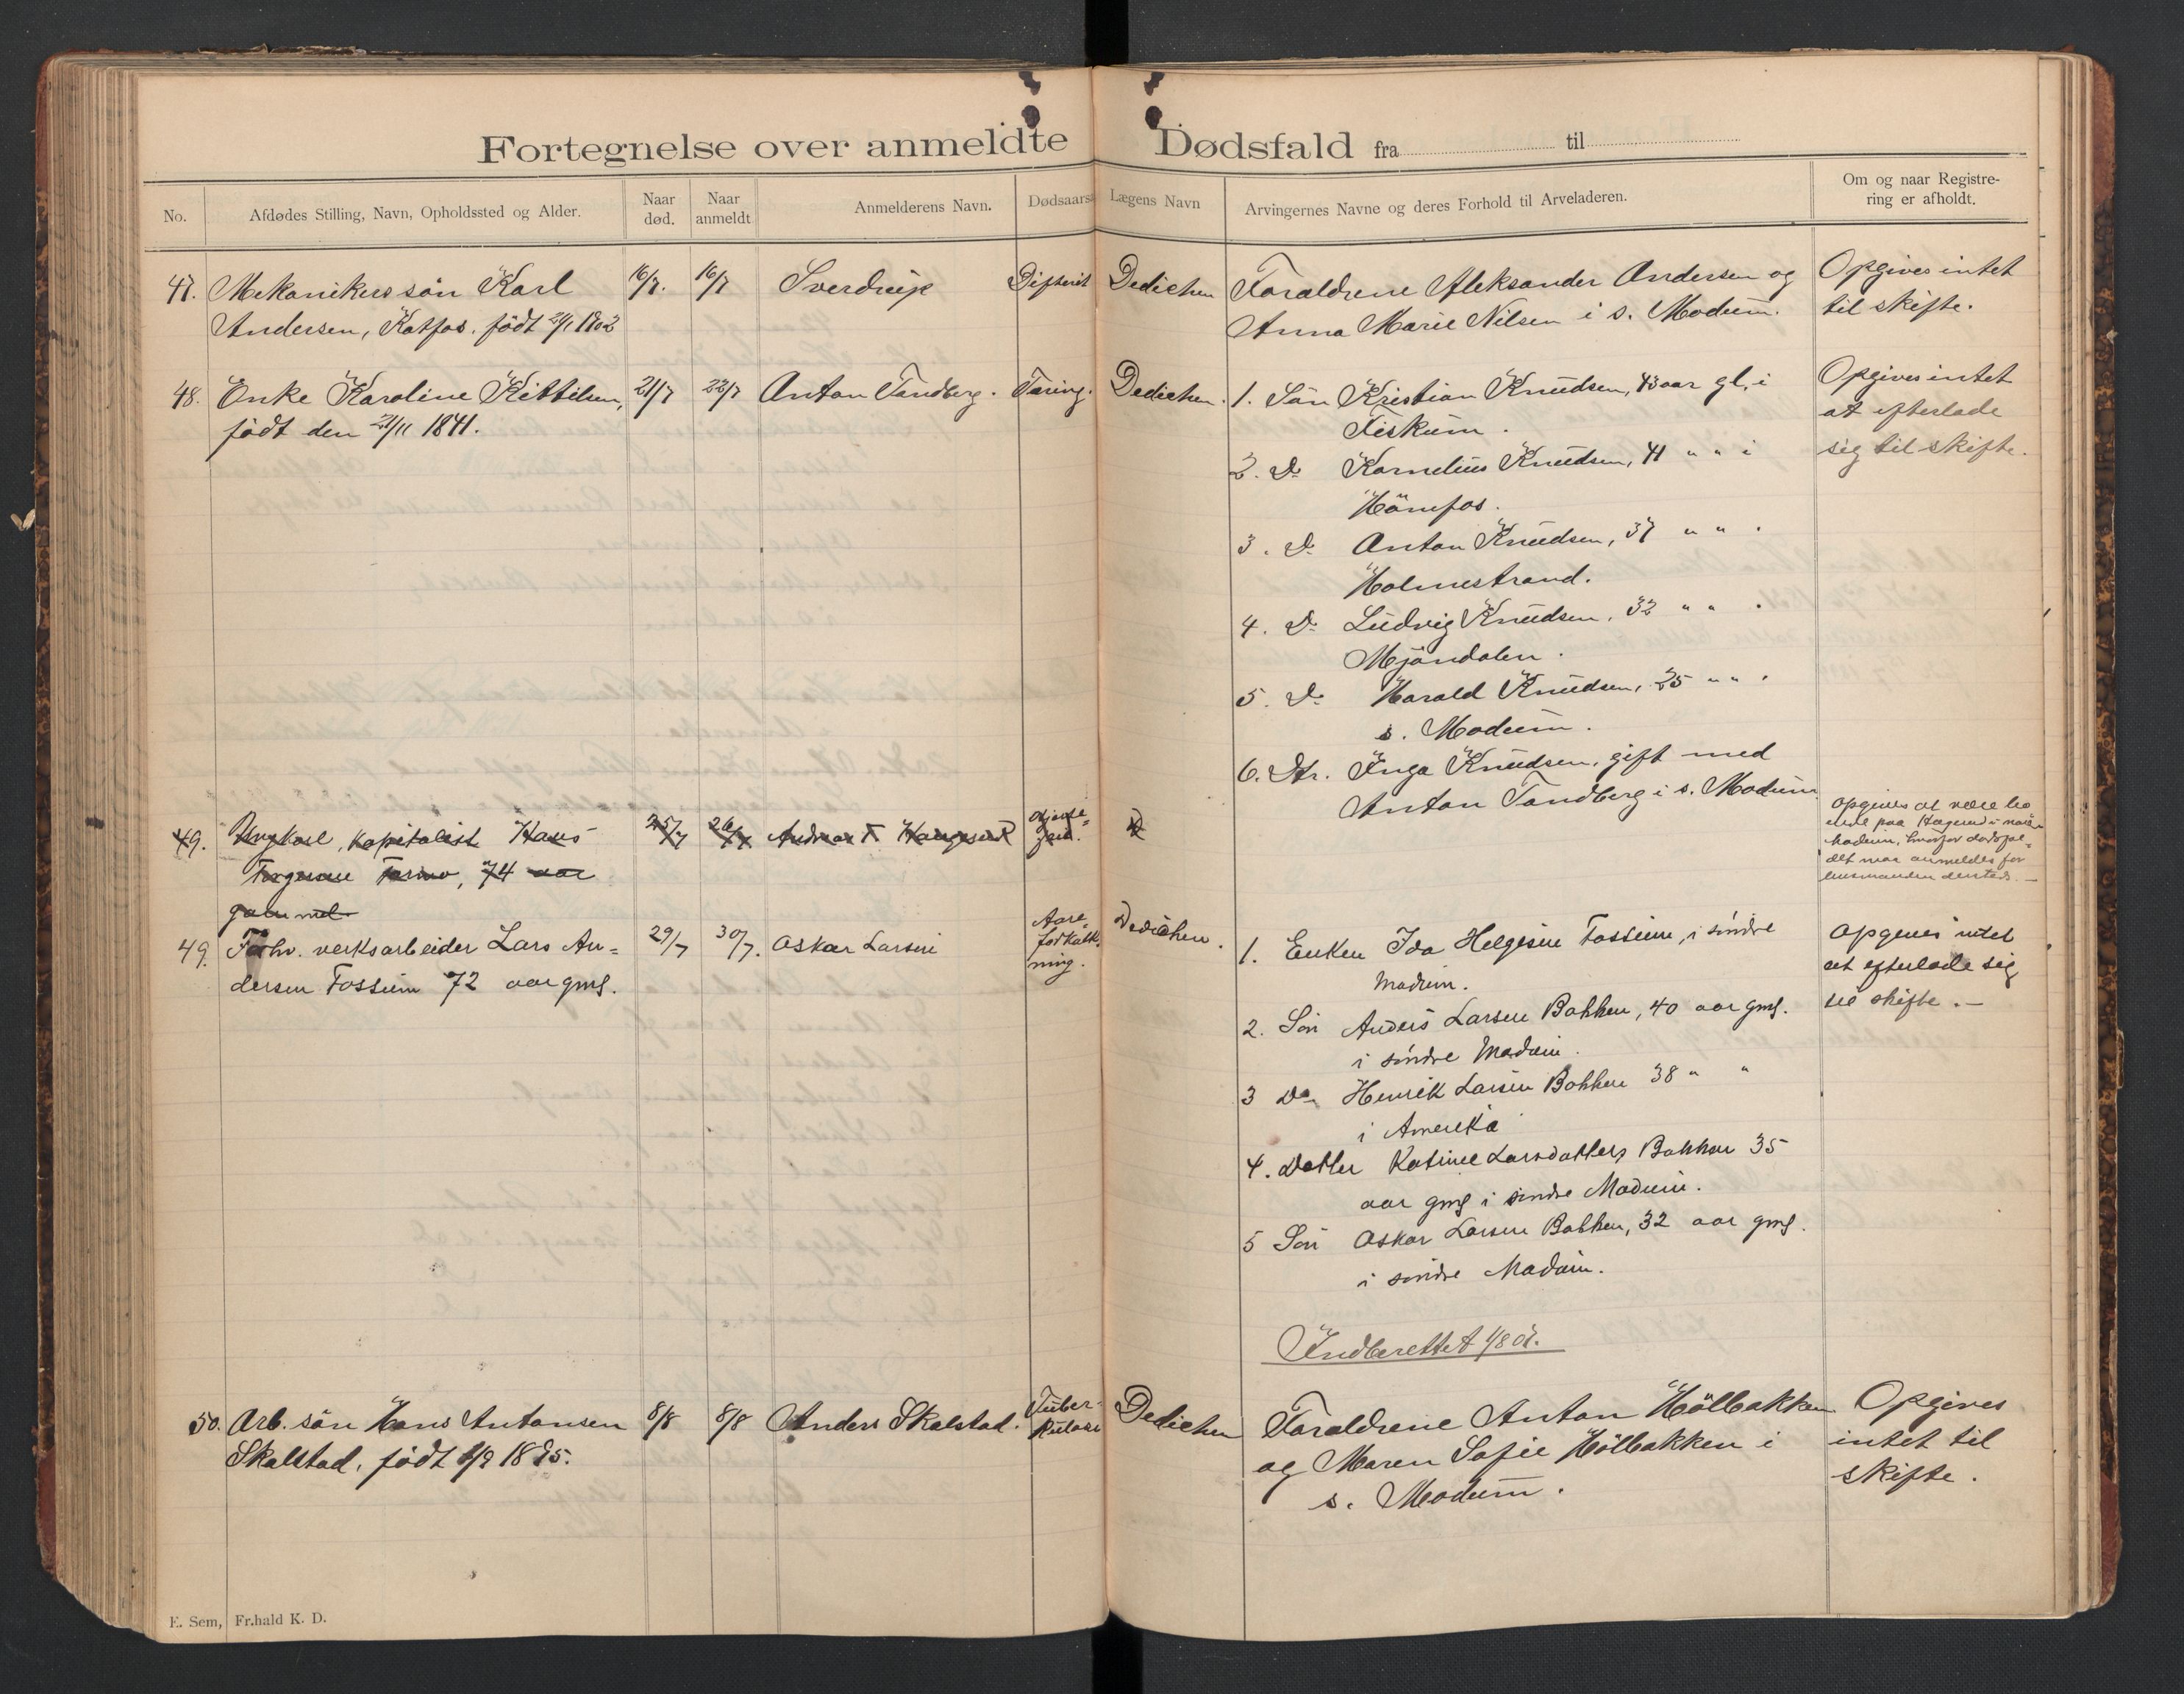 Fortegnelse over anmeldte Dødsfald fra til
No.
Afdødes Stilling, Navn, Opholdssted og Alder.
Naar død.
Naar anmeldt
Anmelderens Navn.
Dødsaars
Lægens Navn
Arvingernes Navne og deres Forhold til Arveladeren.
Om og naar Registre-
ring er afholdt.
47. Mekanikerssön Karl 16/7. 16/7 Sverdrup Difterit Dedichen Forældrene Aleksander Andersen og Opgives intet
Andersen, Katfos. födt 21/1 1902 Anna Marie Nilsen i s. Modum. til skifte.
48. Enke Karoline Kittilsen, 21/7 22/7 Anton Tandberg. Tæring. Dedichen. 1. Sön Kristian Knudsen, 43 aar gl. i Opgives intet
födt den 21/11 1841. Fiskum. at efterlade
2. Do Kornelius Knudsen, 41 " " i sig til skifte.
Hönefos.
3. Do Anton Knudsen, 37 " " "
Holmestrand.
4. Do Ludvig Knudsen, 32 " " "
Mjöndalen.
5. Do Harald Knudsen, 25 " " "
s. Modum.
6. Dtr. Inga Knudsen, gift med
Anton Tandberg i s. Modum
49. Ungkarl, kapitalist Hans 25/7 26/7 Andreas T Haugesund Hjertefeil D
74 aar
gammel
opgives at være bo
ende paa Hagerud i nordre
Modum, hvorfor dødsfal=
det maa anmeldes for
lensmanden dersteds. —
49. Forhv. verksarbeider Lars An= 29/7 30/7. Oskar Larsen Aare
forkalk
ning. Dedichen. 1. Enken Ida Helgesen Fossum, i söndre opgives intet
dersen Fossum 72 aar gml. Modum. at efterlade sig
2. Sön Anders Larsen Bakken, 40 aar gml. til skifte. —
i söndre Modum.
3 Do Henrik Larsen Bakken 38 " "
i Amerika
4. Datter Katrine Larsdatter Bakken 35
aar gml i söndre Modum.
5 Sön Oskar Larsen Bakken, 32 aar gml.
i söndre Modum.
Indberettet 1/8 07.
50. Arb. sön Hans Antonsen 8/8 8/8 Anders Skalstad. Tuber-
kulose Dedichen Forældrene Anton Hölbakken Opgives
Skalstad, födt 1/9 1895. og Maren Sofie Hölbakken i intet til
s. Modum. skifte.
E. Sem, Fr.hald K. D.